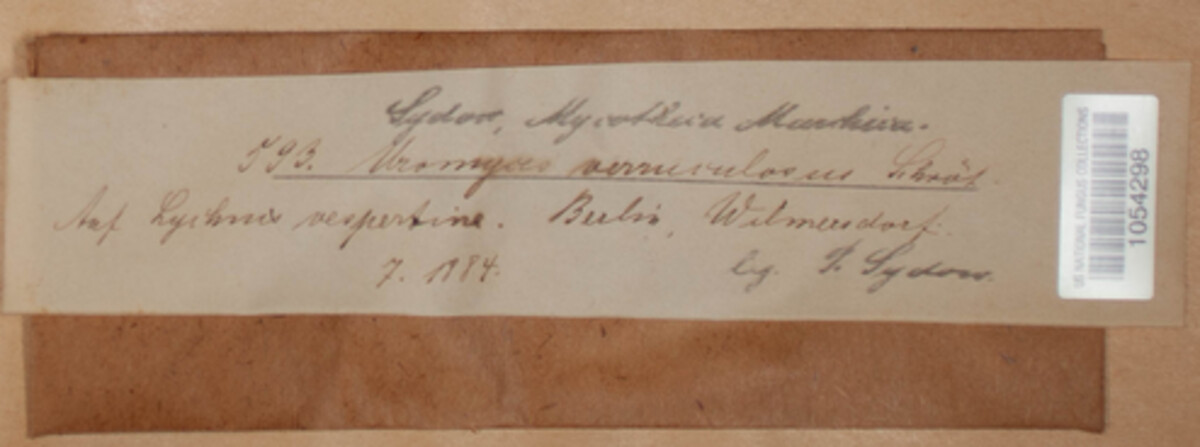 Sydow, Mycotheca Marchica.
593. Uromyces verruculosus Schröt.
Auf Lychnis vespertina. Berlin, Wilmersdorf.
7. 1884. leg. P. Sydow.
US NATIONAL FUNGUS COLLECTIONS
1054298